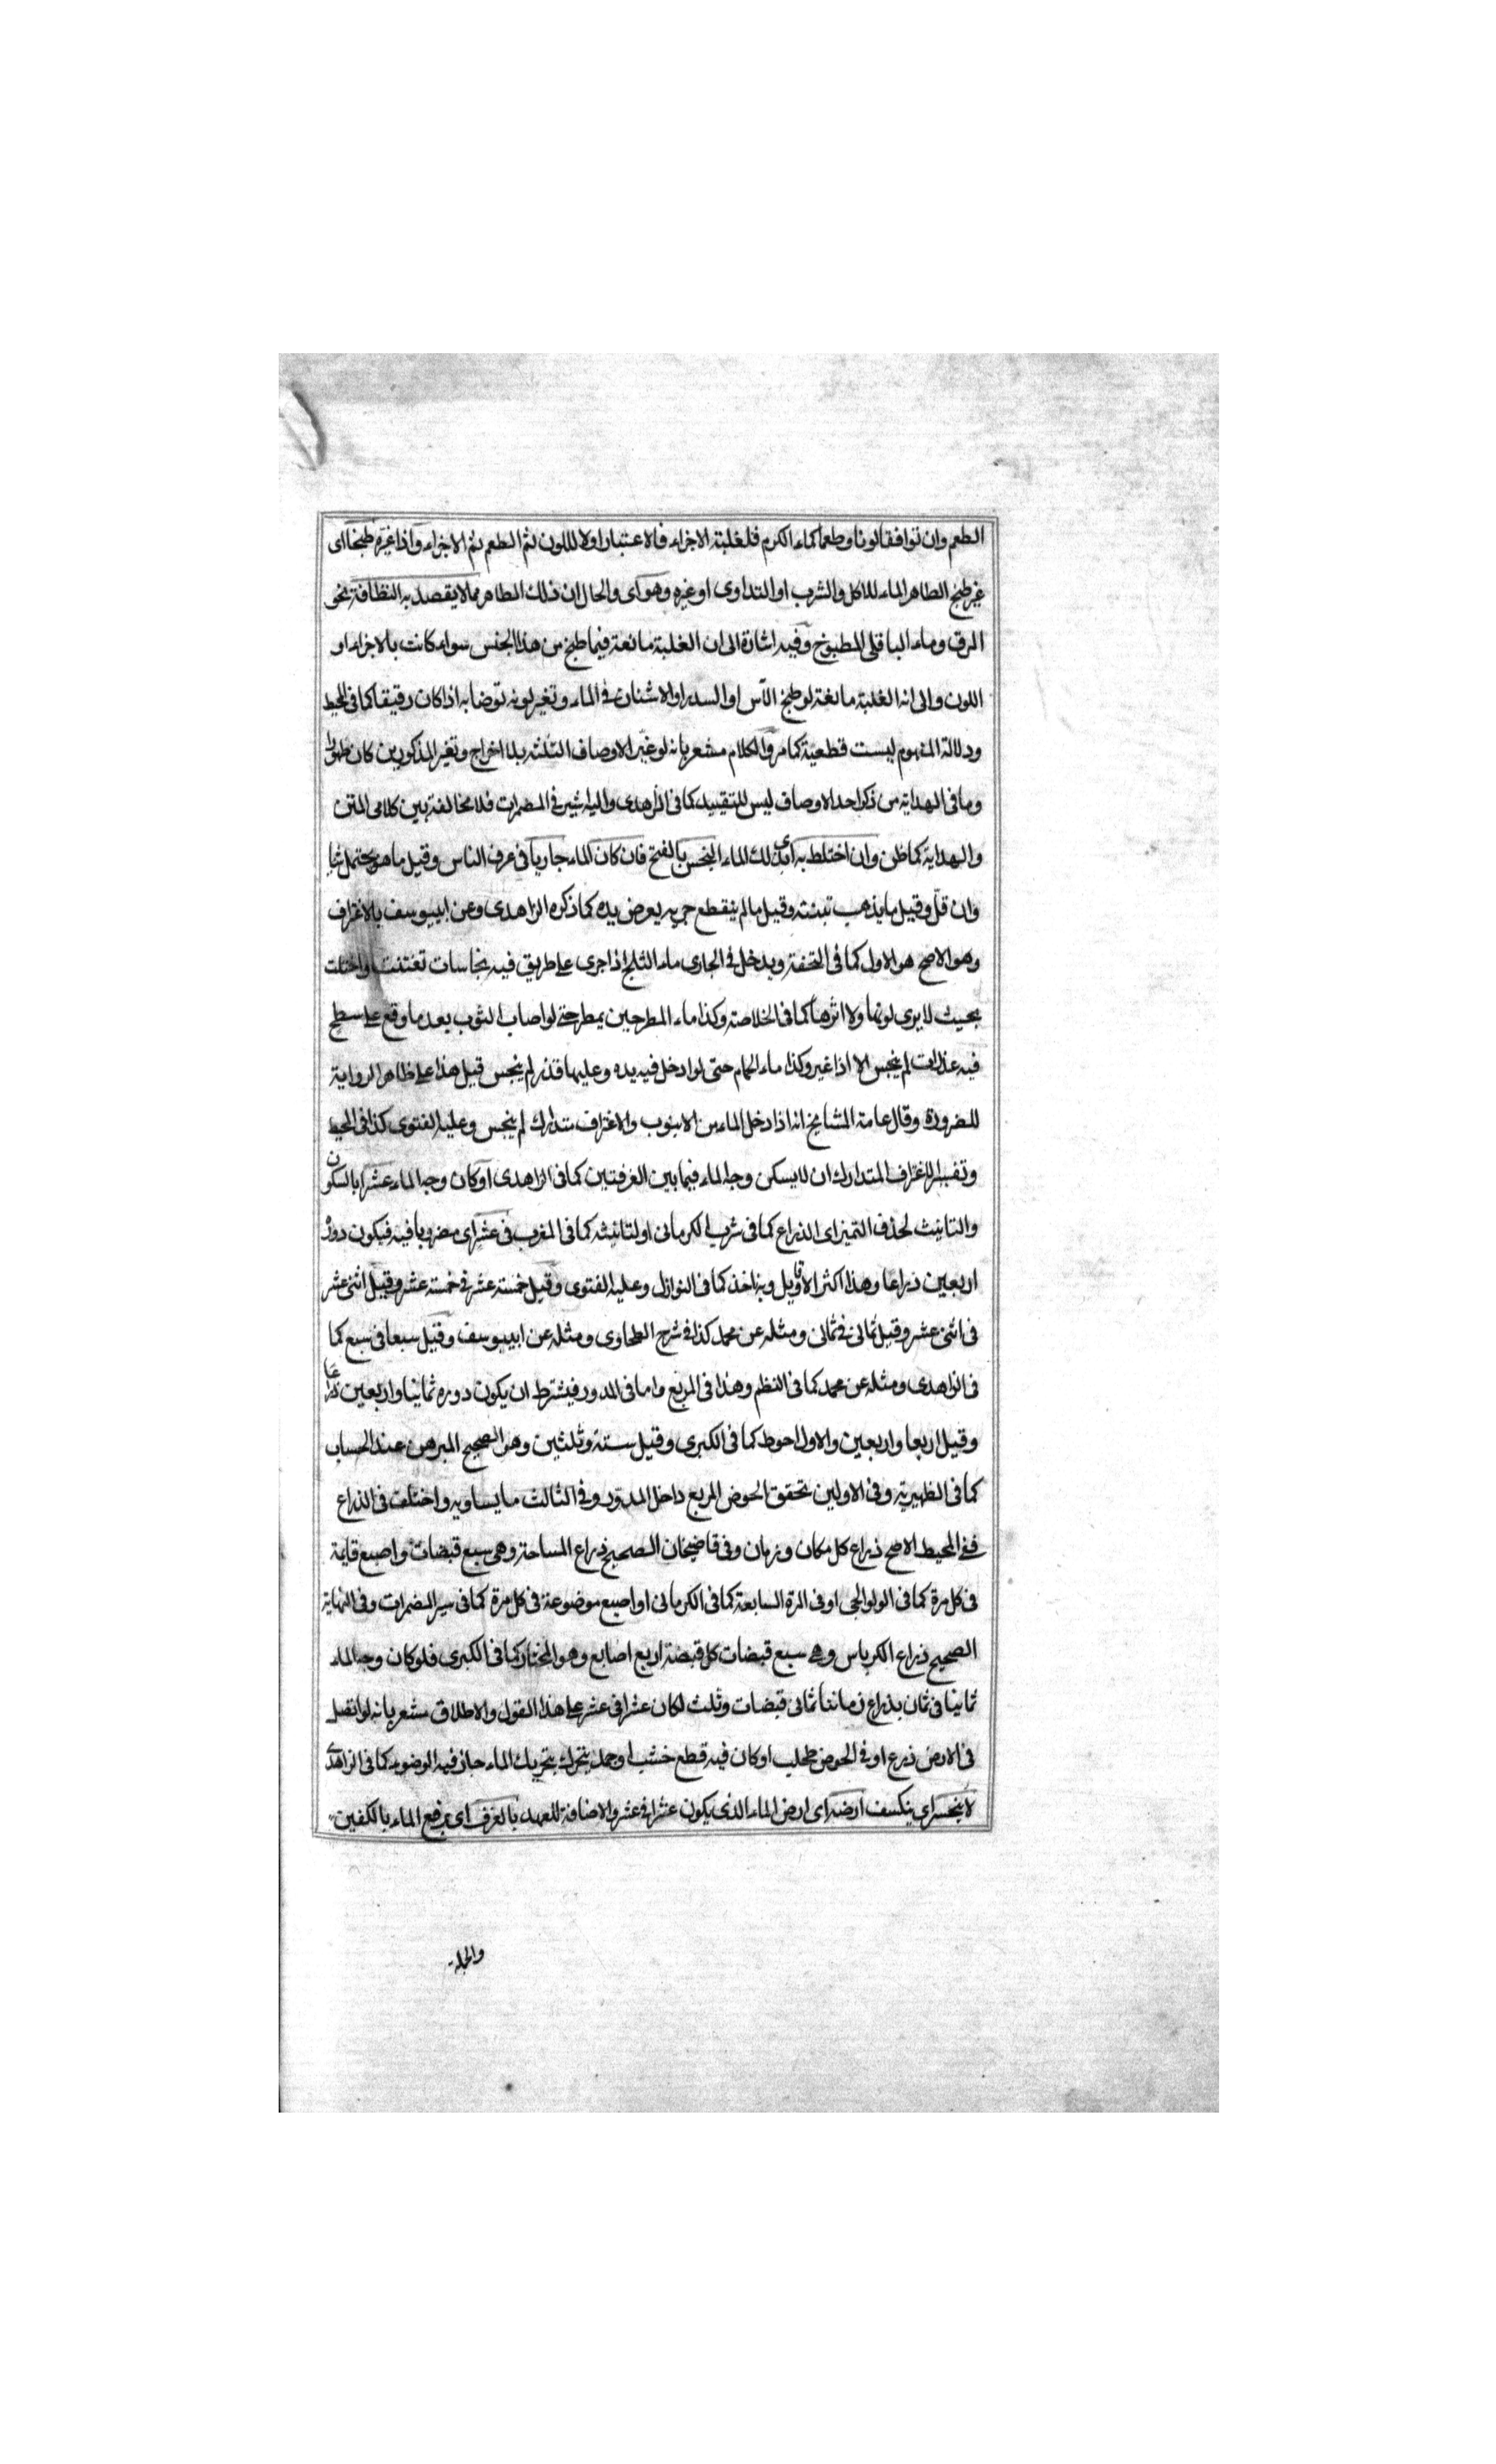 الطعم وان توافقا لونا وطعما كماء الكرم فلغلبة الاجزاء فالاعتبار اولا للون ثم الطعم ثم الاجزاء واذا غيّره طبخا اى
غير طبخ الطاهر الماء للاكل والشرب او التداوى او غيره وهو اى والحال ان ذلك الطاهر مما لا يقصد به النظافة نحو
المرق وماء الباقلى المطبوخ وفيه اشارة الى ان الغلبة مانعة فيما طبخ من هذا الجنس سواء كانت بالاجزاء او
اللون والى انه الغلبة مانعة لو طبخ الآس او السدر او الاشنان فى الماء وتغير لونه توضا به اذا كان رقيقا كما فى المحيط
ودلالة المفهوم ليست قطعية كما مر والكلام مشعر بانه لو غيّر الاوصاف الثلثه بلا اخراج وتغير المذكورين كان طهورا
وما فى الهداية من ذكر احد الاوصاف ليس للتقييد كما فى الزاهدى واليه اشير فى المضمرات فلا مخالفة بين كلامى المتن
والهداية كما ظن وان اختلط به اى بذلك الماء النجس بالفتح فان كان الماء جاريا فى عرف الناس وقيل ما هو يحتمل تبنا
وان قلّ وقيل ما يذهب تبينته وقيل ما لم ينقطع جريه بعرض يده كما ذكره الزاهدى وعن ابييوسف بالاغتراف
وهو الاصح هو الاول كما فى التحفة ويدخل فى الجارى ماء الثلج اذا جرى على طريق فيه نجاسات تفتتت واختلت
بحيث لا يرى لونها ولا اثرها كما فى الخلاصة وكذا ماء المطر حين يمطر حتى لو اصاب الثوب بعد ما وقع على سطح
فيه عذرات لم ينجس الا اذا غير وكذا ماء الحمام حتى لو ادخل فيه يده وعليها قذر لم ينجس قيل هذا على ظاهر الرواية
للضرورة وقال عامة المشايخ انه اذا دخل الماء من الانبوب والاغتراف متدارك لم ينجس وعليه الفتوى كذا فى المحيط
وتفسير الاغتراف المتدارك ان لا يسكن وجه الماء فيما بين الغرفتين كما فى الزاهدى او كان وجه الماء عشرا بالسكون
والتانيث لحذف التميز اى الذراع كما فى شرب الكرمانى او لتانيثه كما فى المغرب فى عشر اى مضروبا فيه فيكون دوره
اربعين ذراعا وهذا اكثر الاقاويل وبه ناخذ كما فى النوازل وعليه الفتوى وقيل خمسة عشر فى خمسة عشر وقيل اثنى عشر
فى اثنى عشر وقيل ثمانى فى ثمانى ومثله عن محمد كذا فى شرح الطحاوى ومثله عن ابييوسف وقيل سبعا فى سبع كما
فى الزاهدى ومثله عن محمد كما فى النظم وهذا فى المربع واما فى المدور فيشترط ان يكون دوره ثمانيا واربعين ذراعا
وقيل اربعا واربعين والاول احوط كما فى الكبرى وقيل ستة وثلثين وهو الصحيح المبرهن عند الحساب
كما فى الظهيرية وفى الاولين تحقق الحوض المربع داخل المدور وفى الثالث ما يساويه واختلف فى الذراع
ففى المحيط الاصح ذراع كل مكان وزمان وفى قاضيخان الصحيح ذراع المساحة وهى سبع قبضات واصبع قايمة
فى كل مرة كما فى الولوالجى او فى المرة السابعة كما فى الكرمانى او اصبع موضوعة فى كل مرة كما فى سير المضمرات وفى النهاية
الصحيح ذراع الكرباس وهى سبع قبضات كل قبضة اربع اصابع وهو المختار كما فى الكبرى فلو كان وجه الماء
ثمانيا فى ثمان بذراع زماننا ثمانى قبضات وثلث لكان عشرا فى عشر على هذا القول والاطلاق مشعر بانه لو اتصل
فى الارض ذرع او فى الحوض طحلب او كان فيه قطع خشب او جمد يتحرك بتحريك الماء جاز فيه الوضوء كما فى الزاهدى
لا ينحسر اى ينكسف ارضه اى ارض الماء الذى يكون عشرا فى عشر والاضافة للعهد بالغرف اى برفع الماء بالكفين
والجملة